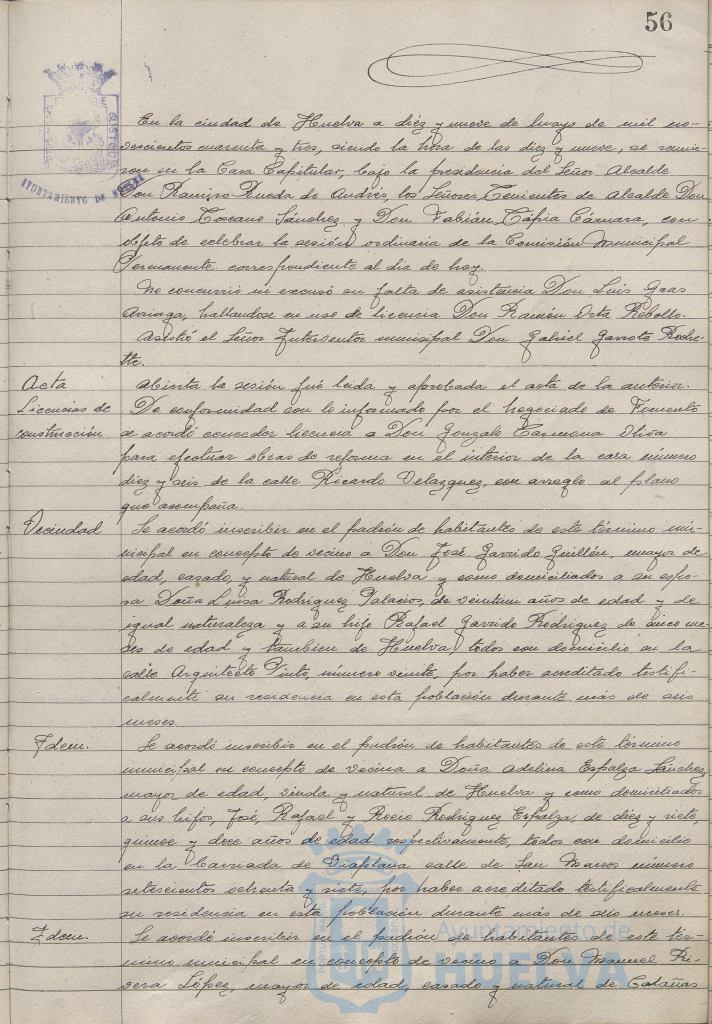 56
AYUNTAMIENTO DE
En la ciudad de Huelva a diez y nueve de Mayo de mil no-
vescientos cuarenta y tres, siendo la hora de las diez y nueve, se reunie-
ron en la Casa Capitular, bajo la presidencia del Señor Alcalde
Don Ramiro Rueda de Andrés, los Señores Tenientes de Alcalde Don
Antonio Toscano Sánchez y Don Fabián Tapia Cámara, con
objeto de celebrar la sesión ordinaria de la Comisión Municipal
Permanente correspondiente al día de hoy.
No concurrió ni excusó su falta de asistencia Don Luis
Arriaga, hallándose en uso de licencia Don Ramón Orta Rebollo.
Asistió el Señor Interventor municipal Don Gabriel Garrote
Acta
abierta la sesión fué leida y aprobada el acta de la anterior.
Licencias de
De conformidad con lo informado por el Negociado de Fomento
construcción
se acordó conceder licencia a Don Gonzalo Carmona Oliva
para efectuar obras de reforma en el interior de la casa número
diez y seis de la calle Ricardo Velazquez, con arreglo al plano
que acompaña.
Vecindad
Se acordó inscribir en el padrón de habitantes de este término mu-
nicipal en concepto de vecino a Don José Garrido Guillén, mayor de
edad, casado, y natural de Huelva y como domiciliados a su espo-
sa Doña Luisa Rodriguez Palacios, de veintiun años de edad y de
igual naturaleza y a su hijo Rafael Garrido Rodriguez de cinco me-
ses de edad y tambien de Huelva, todos con domicilio en la
calle Arquitecto Pinto, número veinte, por haber acreditado testifi-
calmente su residencia en esta población durante más de seis
meses.
Idem.
Se acordó inscribir en el padrón de habitantes de este término
municipal en concepto de vecina a Doña Adelina Espalza Sánchez
mayor de edad, viuda y natural de Huelva y como domiciliados
a sus hijos, José, Rafael y Rocio Rodriguez Espalza, de diez y siete,
quince y doce años de edad respectivamente, todos con domicilio
en la barriada de Viaplana calle de San Marcos número
setescientos ochenta y siete, por haber acreditado testificalmente
su residencia en esta población durante más de seis meses.
Idem.
Se acordó inscribir en el padrón de habitantes de este tér-
mino municipal en concepto de vecino a Don Manuel Ri-
vera López, mayor de edad, casado y natural de Calañas
Ayuntamiento de
HUELVA